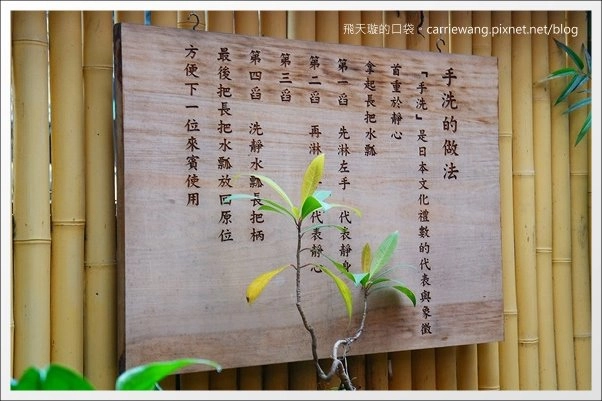 飛天璇的口袋。carriewang.pixnet.net/blog
手洗的做法
『手洗』是日本文化禮數的代表與象徵
首重於靜心
拿起長把水瓢
第一舀 先淋左手 代表靜身
第二舀 再淋 代表靜心
第三舀
第四舀 洗靜水瓢長把柄
最後把長把水瓢放回原位
方便下一位來賓使用